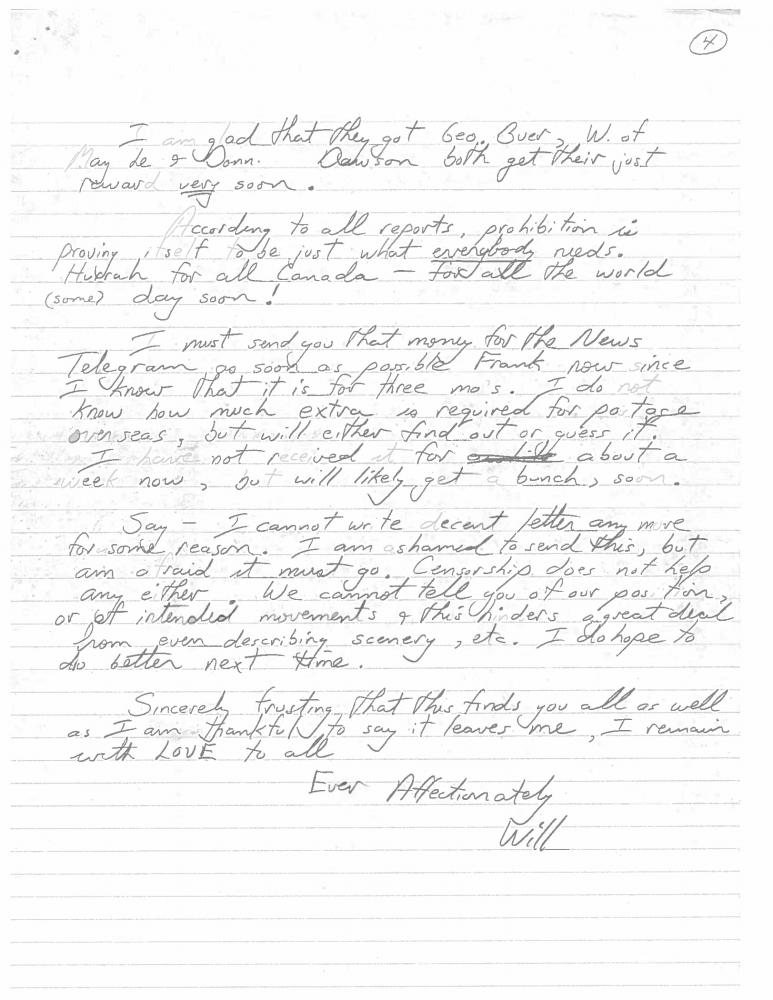 4
I am glad that they got Geo. Buer, W. of
May de & Donn. Dawson both get their just
reward very soon.
According to all reports, prohibition is
proving itself to be just what everybody needs.
Hurrah for all Canada — for all the world
(some) day soon!
I must send you that money for the News
Telegram, as soon as possible Frank now since
I know that it is for three mo's. I do not
know how much extra is required for postage
overseas, but will either find out or guess it.
I have not received it for about a
week now, but will likely get a bunch, soon.
Say — I cannot write decent letter any more
for some reason. I am ashamed to send this, but
am afraid it must go. Censorship does not help
any either. We cannot tell you of our position,
or of intended movements & this hinders a great deal
from even describing scenery, etc. I do hope to
do better next time.
Sincerely trusting that this finds you all as well
as I am thankful to say it leaves me, I remain
with LOVE to all
Ever Affectionately
Will